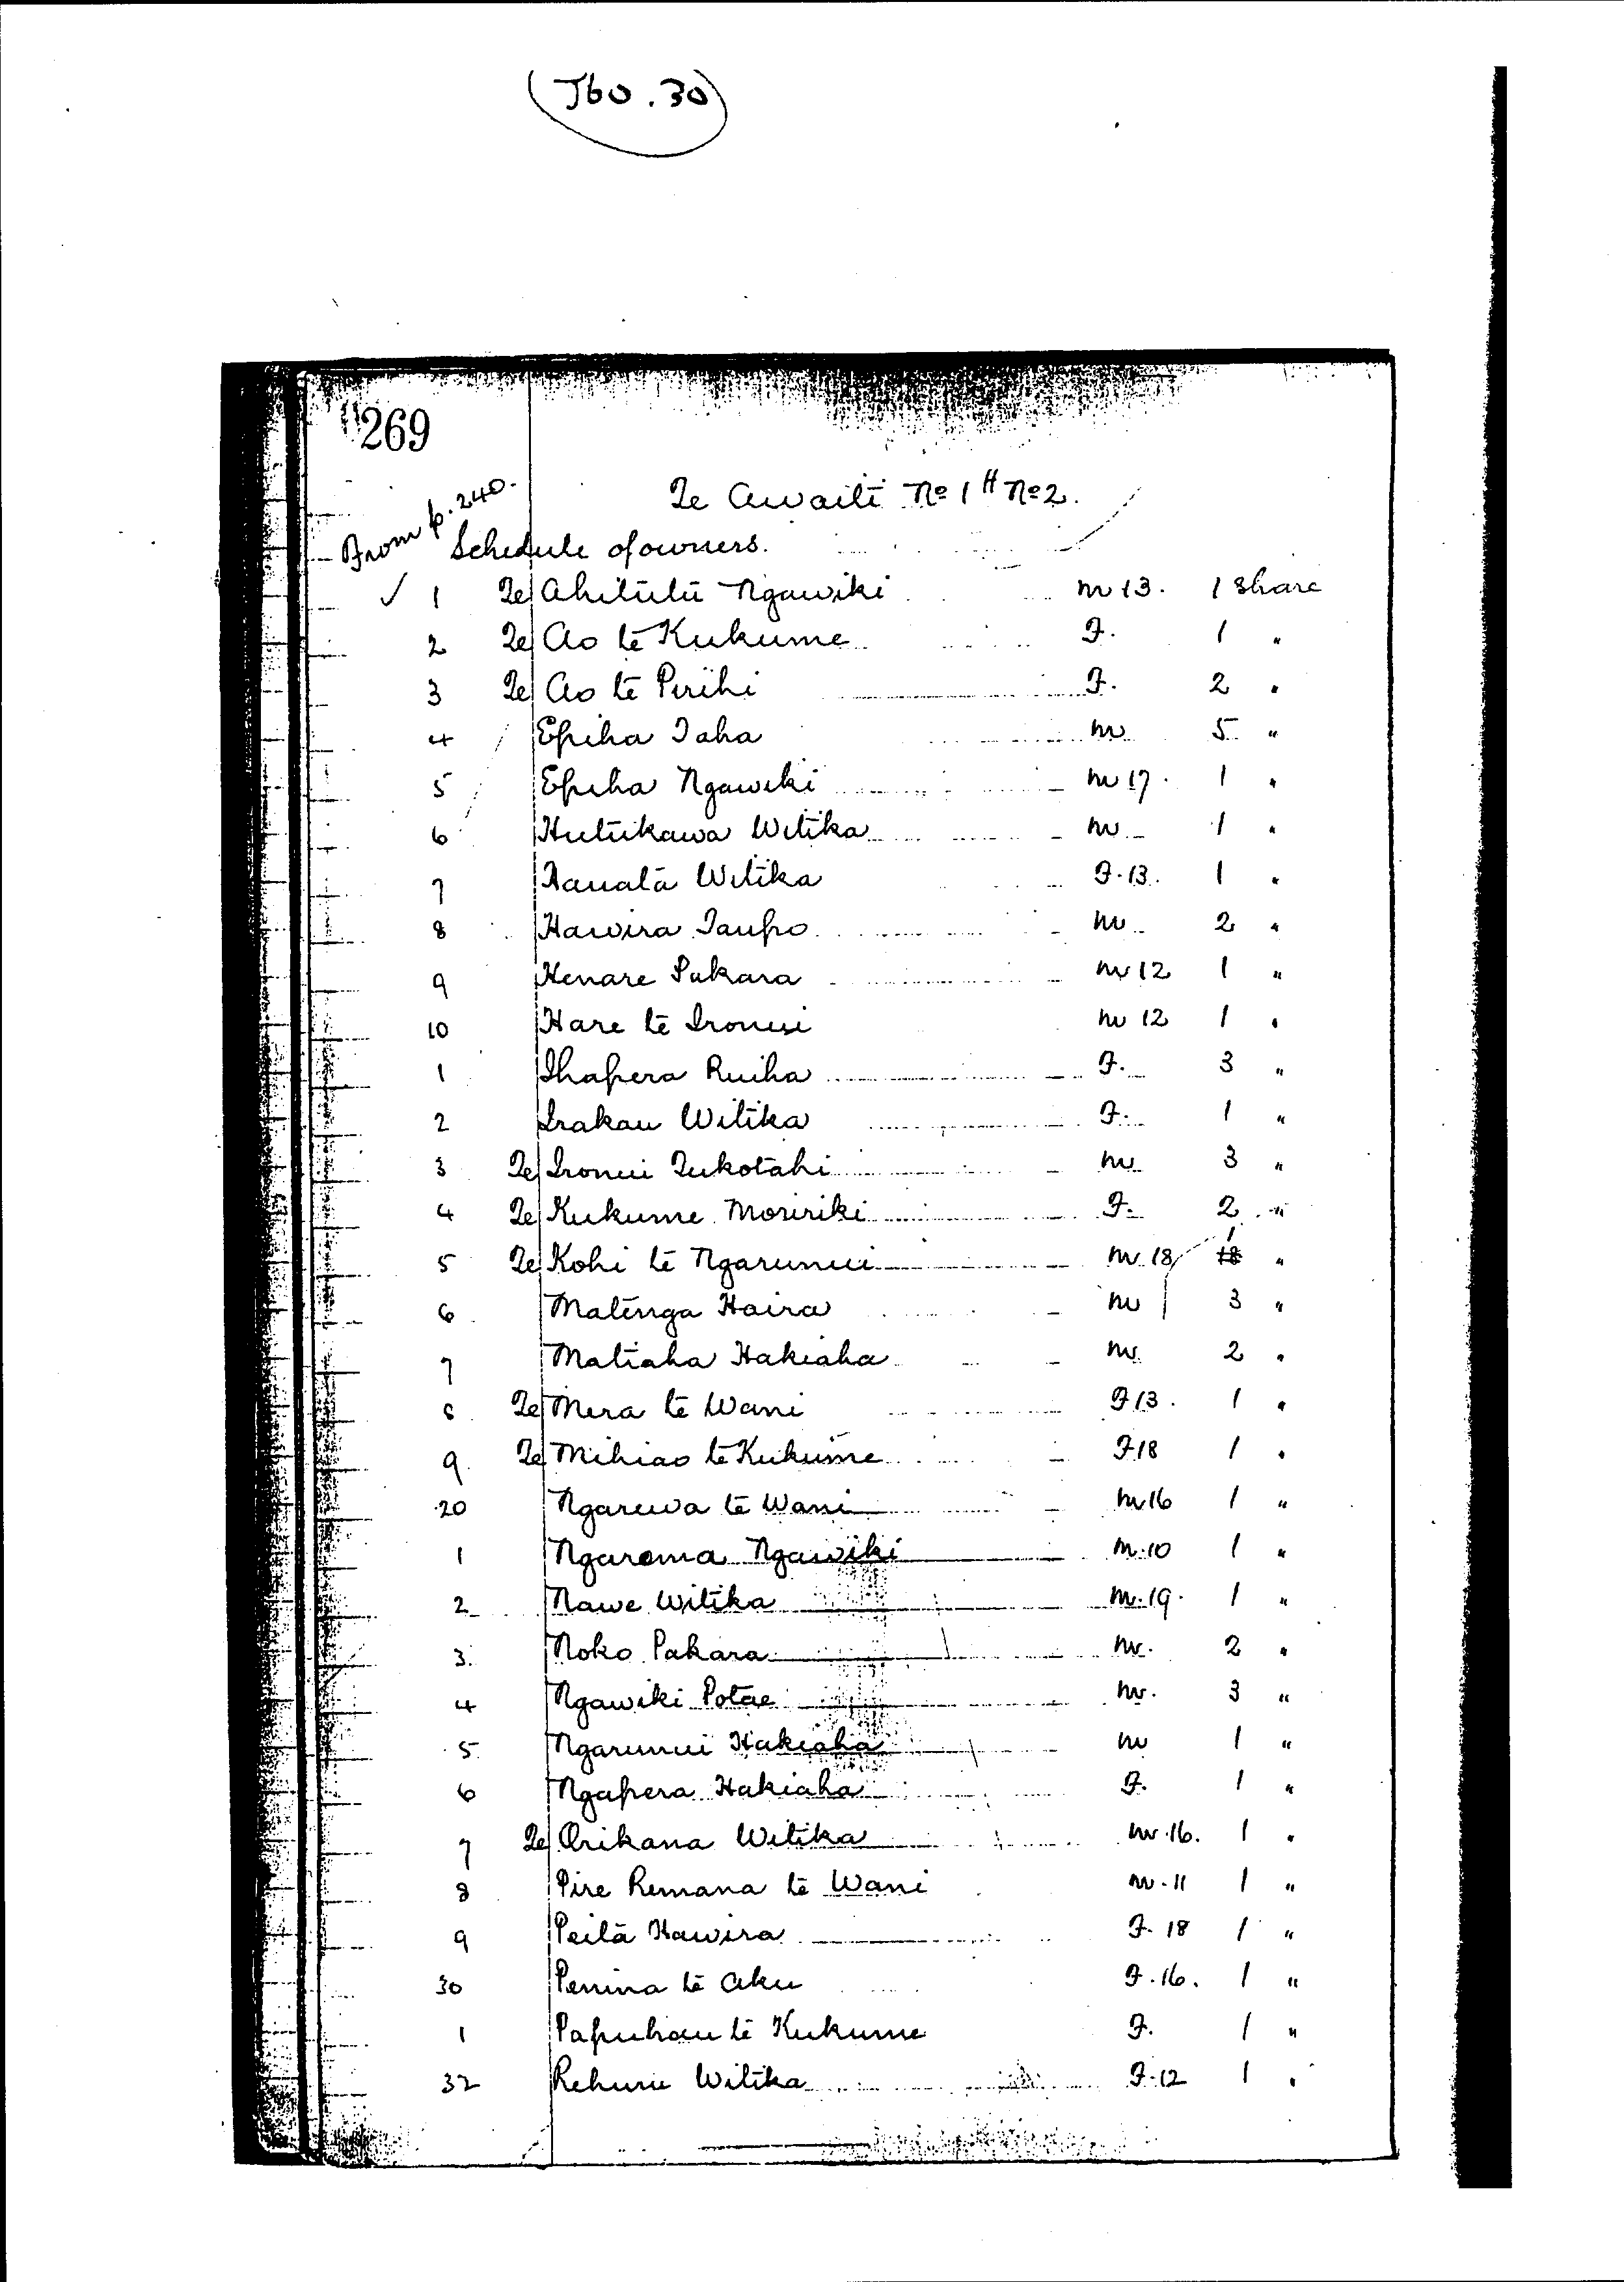 (J60.30)
269
From p. 240.
Te Awaiti No 1 H No 2.
Schedule of owners.
✓ 1 Te Ahitutu Ngawiki m 13. 1 share
2 Te Ao te Kukume F. 1 "
3 Te Ao te Pirihi F. 2 "
4 Epiha Taha m 5 "
5 Epiha Ngawiki m 17. 1 "
6 Hutukawa Witika m 1 "
7 Hauata Witika F. 13. 1 "
8 Hawira Taupo m 2 "
9 Henare Pakara m 12 1 "
10 Hare te Ironui m 12 1 "
1 Ihapera Ruiha F. 3 "
2 Irakau Witika F. 1 "
3 Te Ironui Tukotahi m 3 "
4 Te Kukume Moririki F. 2 "
5 Te Kohi te Ngarunui m 18 1 "
6 Matenga Haira m 3 "
7 Matiaha Hakiaha m. 2 "
8 Te Mera te Wani F 13. 1 "
9 Te Mihiao te Kukume F 18 1 "
20 Ngarewa te Wani m 16 1 "
1 Ngaroma Ngawiki m. 10 1 "
2 Nawe Witika m. 19. 1 "
3. Noko Pakara m. 2 "
4 Ngawiki Potae m. 3 "
5 Ngarunui Hakiaha m 1 "
6 Ngapera Hakiaha F. 1 "
7 Te Orikana Witika m. 16. 1 "
8 Pire Remana te Wani m. 11 1 "
9 Peita Hawira F. 18 1 "
30 Penina te Aku F. 16. 1 "
1 Papuhau te Kukume F. 1 "
32 Rehuru Witika F. 12 1 "